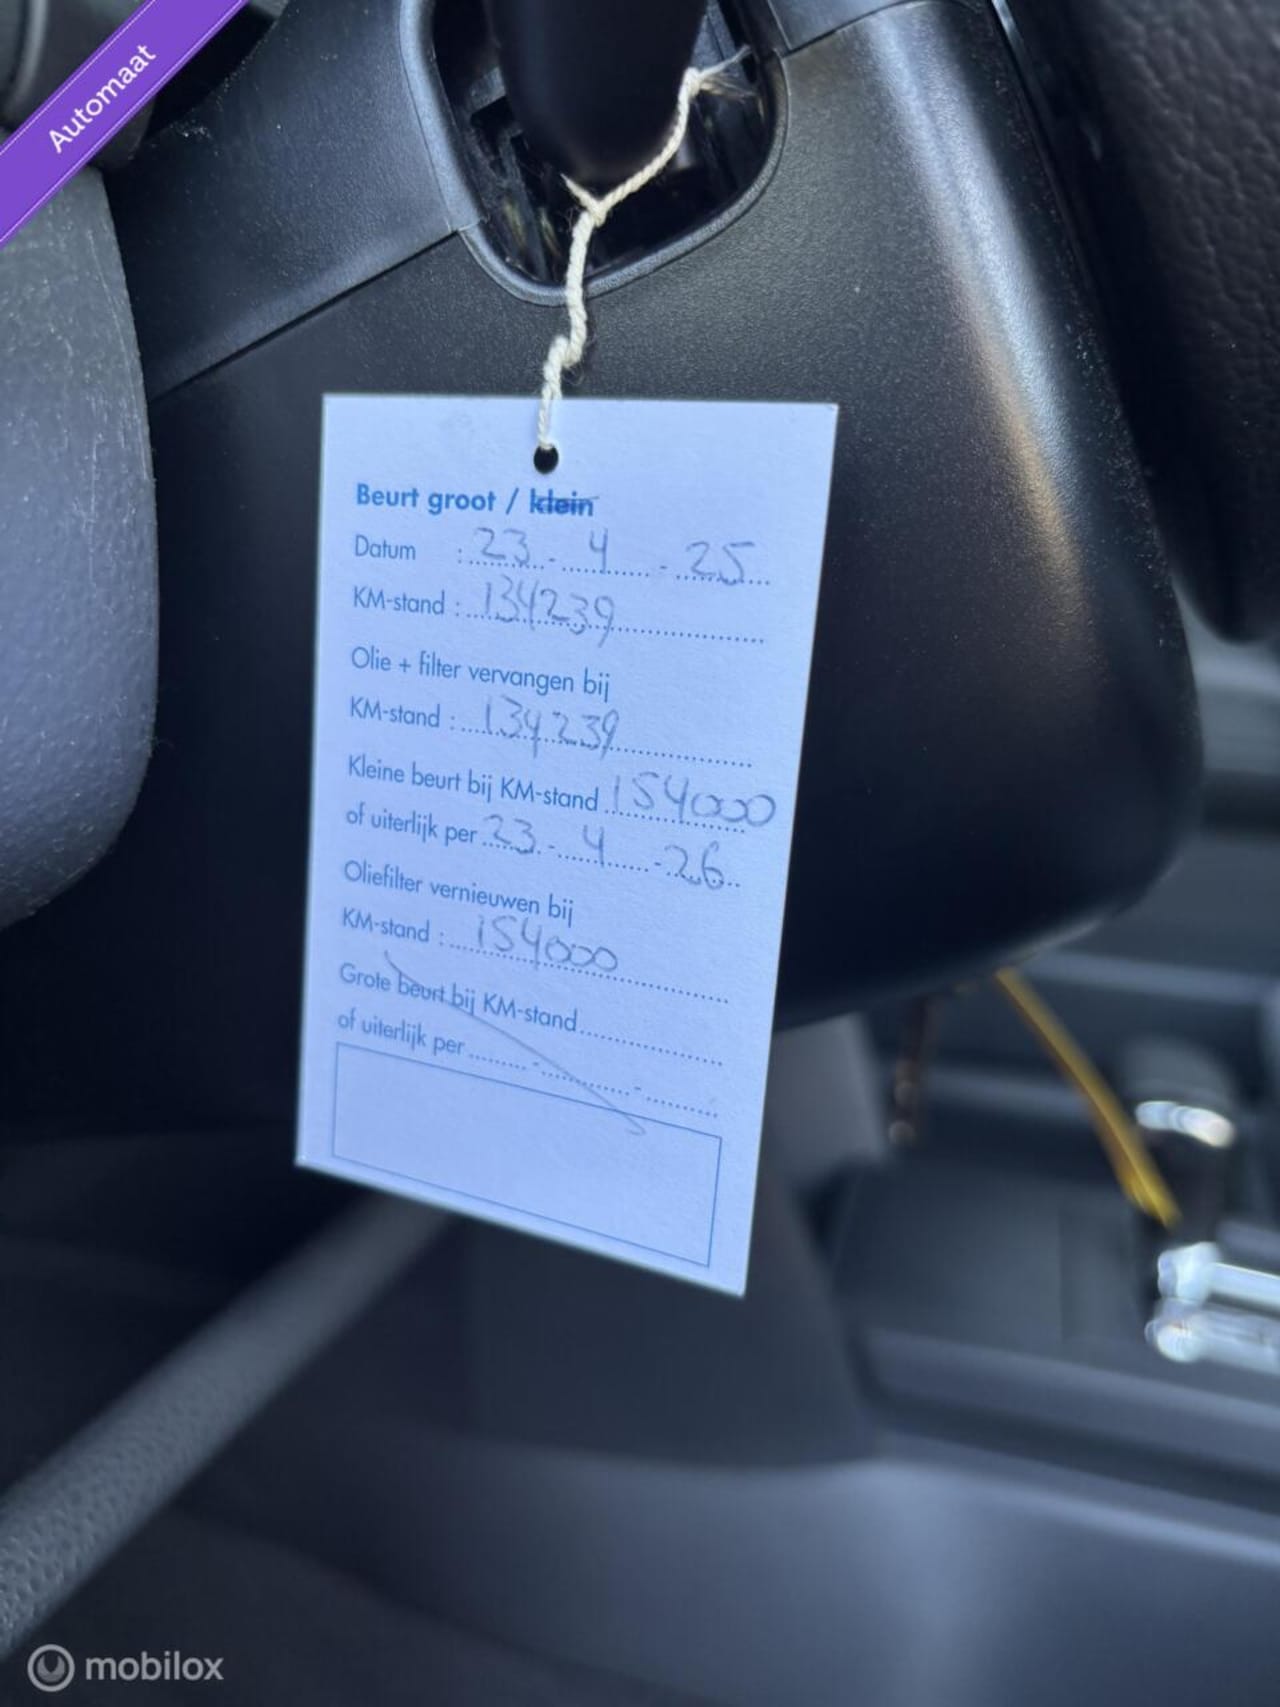 Automaat
Beurt groot / klein
Datum : 23 - 4 - 25
KM-stand : 134239
Olie + filter vervangen bij
KM-stand : 134239
Kleine beurt bij KM-stand 154000
of uiterlijk per 23 - 4 - 26
Oliefilter vernieuwen bij
KM-stand : 154000
Grote beurt bij KM-stand
of uiterlijk per - -
mobilox